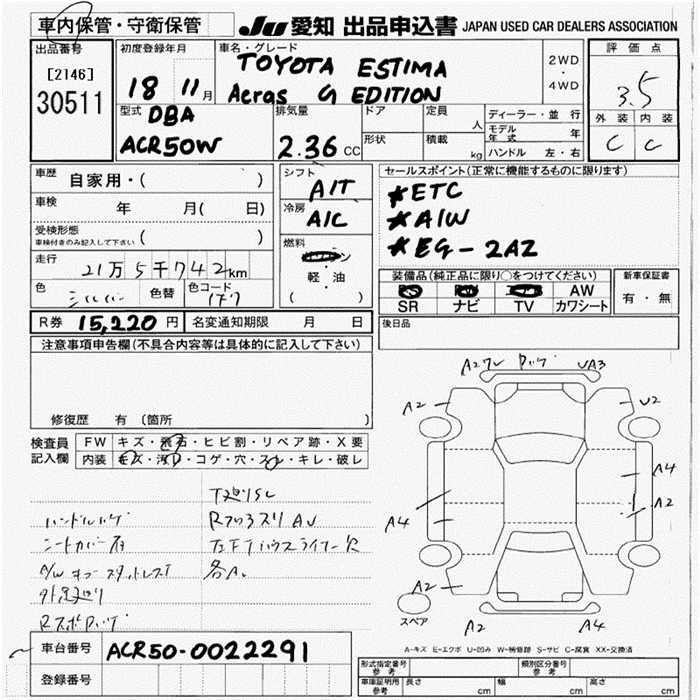 車内保管・守衛保管
JU 愛知 出品申込書 JAPAN USED CAR DEALERS ASSOCIATION
出品番号
[2146]
30511
初度登録年月
18 11月
車名・グレード
TOYOTA ESTIMA
Aeras G EDITION
2WD
・
4WD
評価点
3.5
外装 内装
C C
型式 DBA
ACR50W
排気量
2.36 CC
ドア
定員
人
形状
積載
kg
ディーラー・並行
モデル年式 年
ハンドル 左・右
車歴 自家用・( )
車検 年 月( 日)
受検形態
車検付きのみ記入して下さい ( )
走行 21万5千742km
色 シルバー 色替 色コード
シフト
A/T
冷房
A/C
燃料
軽・油
( )
セールスポイント(正常に機能するものに限ります)
★ETC
★A/W
★EG-2AZ
装備品(純正品に限り○をつけてください)
AW
SR ナビ TV カワシート
新車保証書
有・無
R券 15,220円 名変通知期限 月 日
後日品
注意事項申告欄(不具合内容等は具体的に記入して下さい)
修復歴 有 (箇所
検査員
記入欄
FW キズ・飛石・ヒビ割・リペア跡・X要
内装 キズ・汚れ・コゲ・穴・スレ・キレ・破レ
ハンドルハゲ
シートカバー有
各A.
A2
U2
A4
A2
A4
A2
A2
A4
UA3
スペア
A-キズ E-エクボ U-凹み W-補修跡 S-サビ C-腐食 XX-交換済
車台番号 ACR50-0022291
登録番号
形式指定番号
参考
類別区分番号
参考
車庫証明用
参考
長さ cm 幅 cm 高さ cm